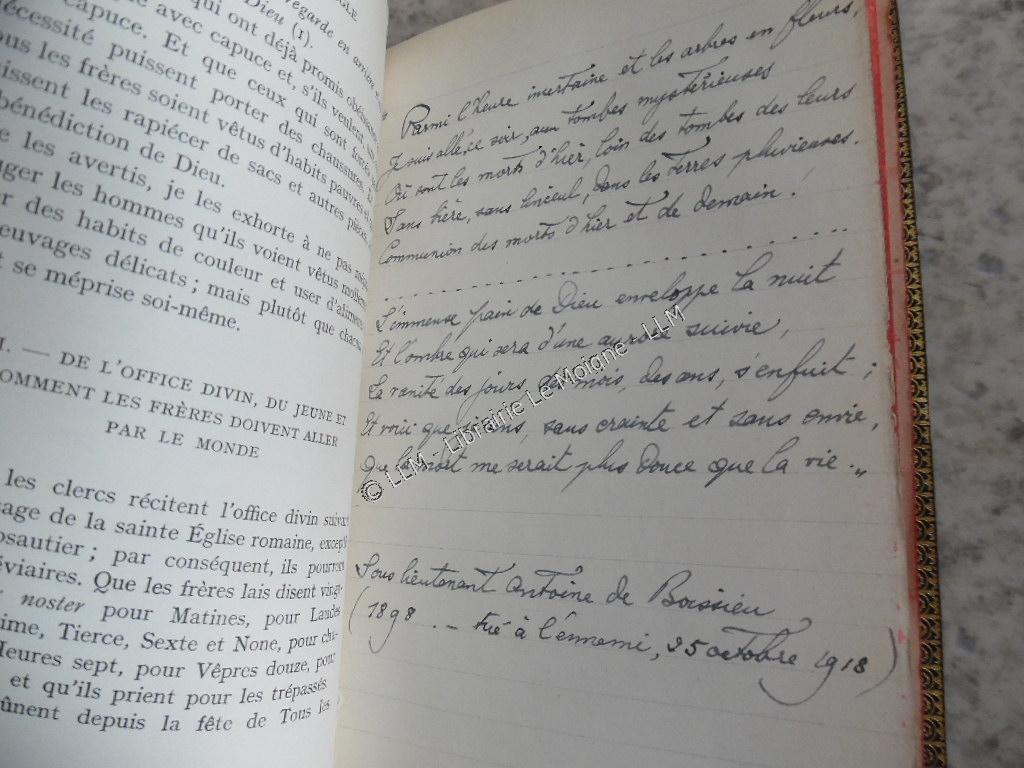 GLE
regarde en arrière
Dieu (1).
qui ont déjà promis obéi
avec capuce et, s'ils veulent
capuce. Et que ceux qui sont forcés
nécessité puissent porter des chaussures.
ous les frères soient vêtus d'habits pauvres et
uissent les rapiécer de sacs et autres pièces
bénédiction de Dieu.
e les avertis, je les exhorte à ne pas
uger les hommes qu'ils voient vêtus molle
er des habits de couleur et user d'aliments
euvages délicats ; mais plutôt que chacun
et se méprise soi-même.
I. — DE L'OFFICE DIVIN, DU JEUNE ET
OMMENT LES FRÈRES DOIVENT ALLER
PAR LE MONDE
les clercs récitent l'office divin suivant
sage de la sainte Église romaine, excepté
psautier ; par conséquent, ils pourront
éviaires. Que les frères lais disent vingt-
noster pour Matines, pour Laudes
ime, Tierce, Sexte et None, pour cha
Heures sept, pour Vêpres douze, pour
et qu'ils prient pour les trépassés.
ûnent depuis la fête de Tous les
" Parmi l'heure incertaine et les arbres en fleurs,
Je suis allé, ce soir, aux tombes mystérieuses
Où sont les morts d'hier, loin des tombes des leurs
Sans bière, sans linceul, dans les terres pluvieuses.
Communion des morts d'hier et de demain !
L'immense paix de Dieu enveloppe la nuit
Et l'ombre qui sera d'une aurore suivie,
La vanité des jours, des mois, des ans, s'enfuit ;
Et voici que je sens, sans crainte et sans envie,
Que la mort me serait plus douce que la vie.„
Sous lieutenant Antoine de Boissieu
(1898 - tué à l'ennemi, 25 octobre 1918)
© LLM - Librairie Le Moigne - LLM